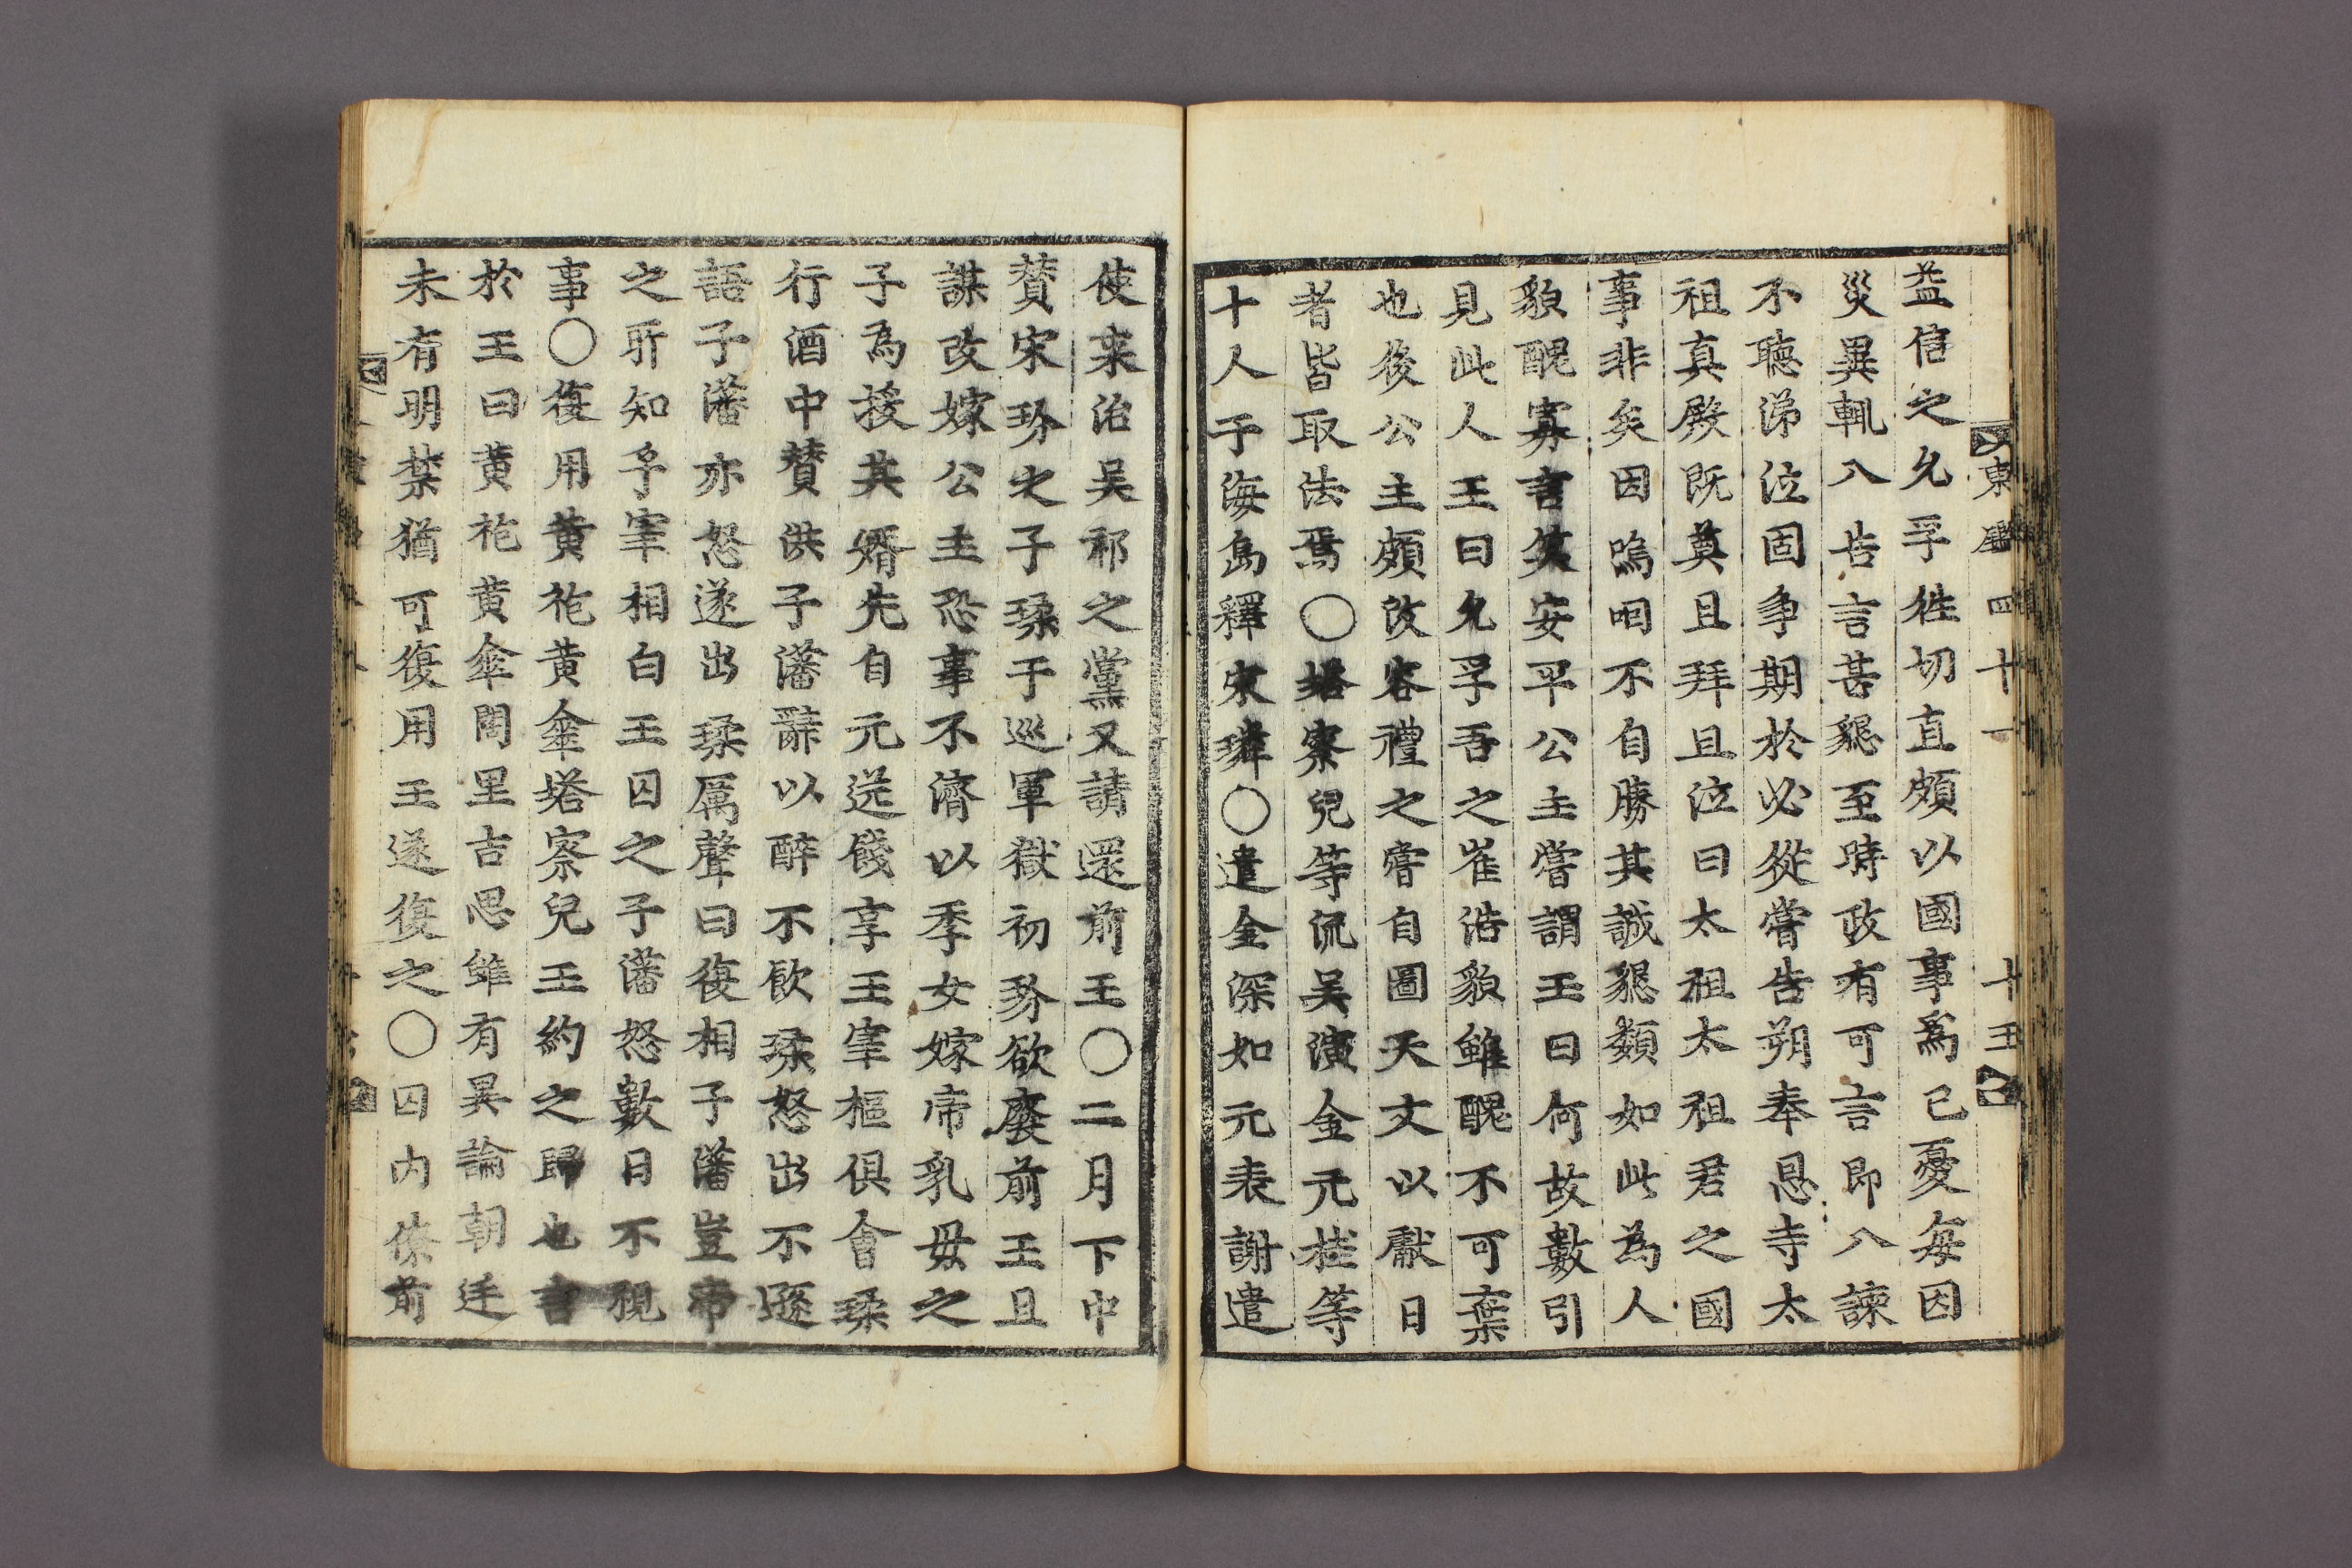 東鑑四十一 十五
益信之允孚性切直頗以國事爲己憂每因
災異輒入告言甚懇至時政有可言即入諫
不聽涕泣固爭期於必從嘗告朔奉恩寺太
祖真殿既奠且拜且泣曰太祖太祖君之國
事非矣因嗚咽不自勝其誠懇類如此為人
貌醜寡言笑安平公主嘗謂王曰何故數引
見此人王曰允孚吾之崔浩貌雖醜不可棄
也後公主頗改容禮之嘗自圖天文以獻日
者皆取法焉○塔察兒等流吳演金元桂等
十人于海島釋宋璘○遣金深如元表謝遣
使來治吳祁之黨又請還前王○二月下中
贊宋玢之子瑈于巡軍獄初玢欲廢前王且
謀改嫁公主恐事不濟以季女嫁帝乳母之
子為援其婿先自元送餞享王宰樞俱會瑈
行酒中贊洪子藩辭以醉不飲瑈怒出不遜
語子藩亦怒遂出瑈厲聲曰復相子藩豈帝
之所知乎宰相白王囚之子藩怒數日不視
事○復用黃袍黃傘塔察兒王約之歸也言
於王曰黃袍黃傘闊里吉思雖有異論朝廷
未有明禁猶可復用王遂復之○囚内僚前